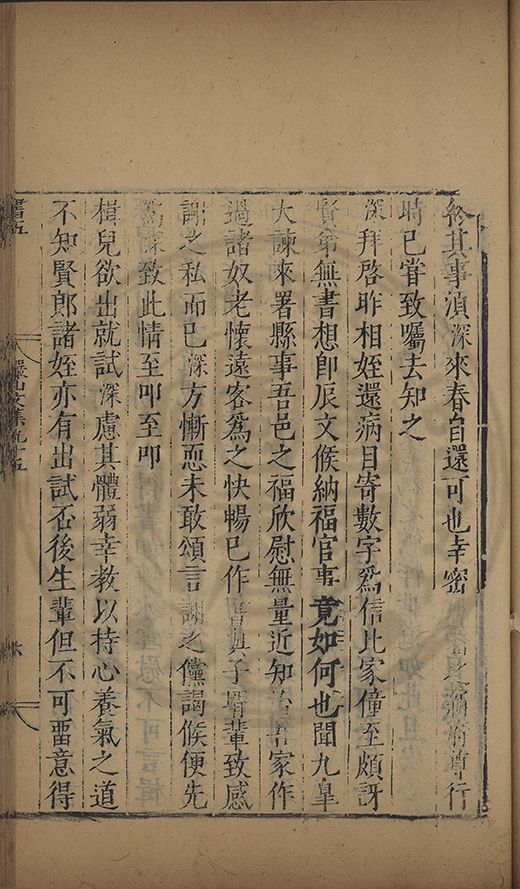 終其事須深來春自還可也幸密 府尊行
時已甞致囑去知之
深拜啓昨相姪還病目寄數字爲信比家僮至頗訝
賢弟無書想即辰文候納福官事竟如何也聞九皐
大諫來署縣事吾邑之福欣慰無量近知 吾家作
過諸奴老懷遠客爲之快暢已作書與子胥輩致感
謝之私而已深方慚恧未敢頌言謝之儻謁候便先
爲深致此情至叩至叩
楫兒欲出就試深慮其體弱幸教以持心養氣之道
不知賢郎諸姪亦有出試否後生輩但不可畱意得
書五
儼山文集九十五